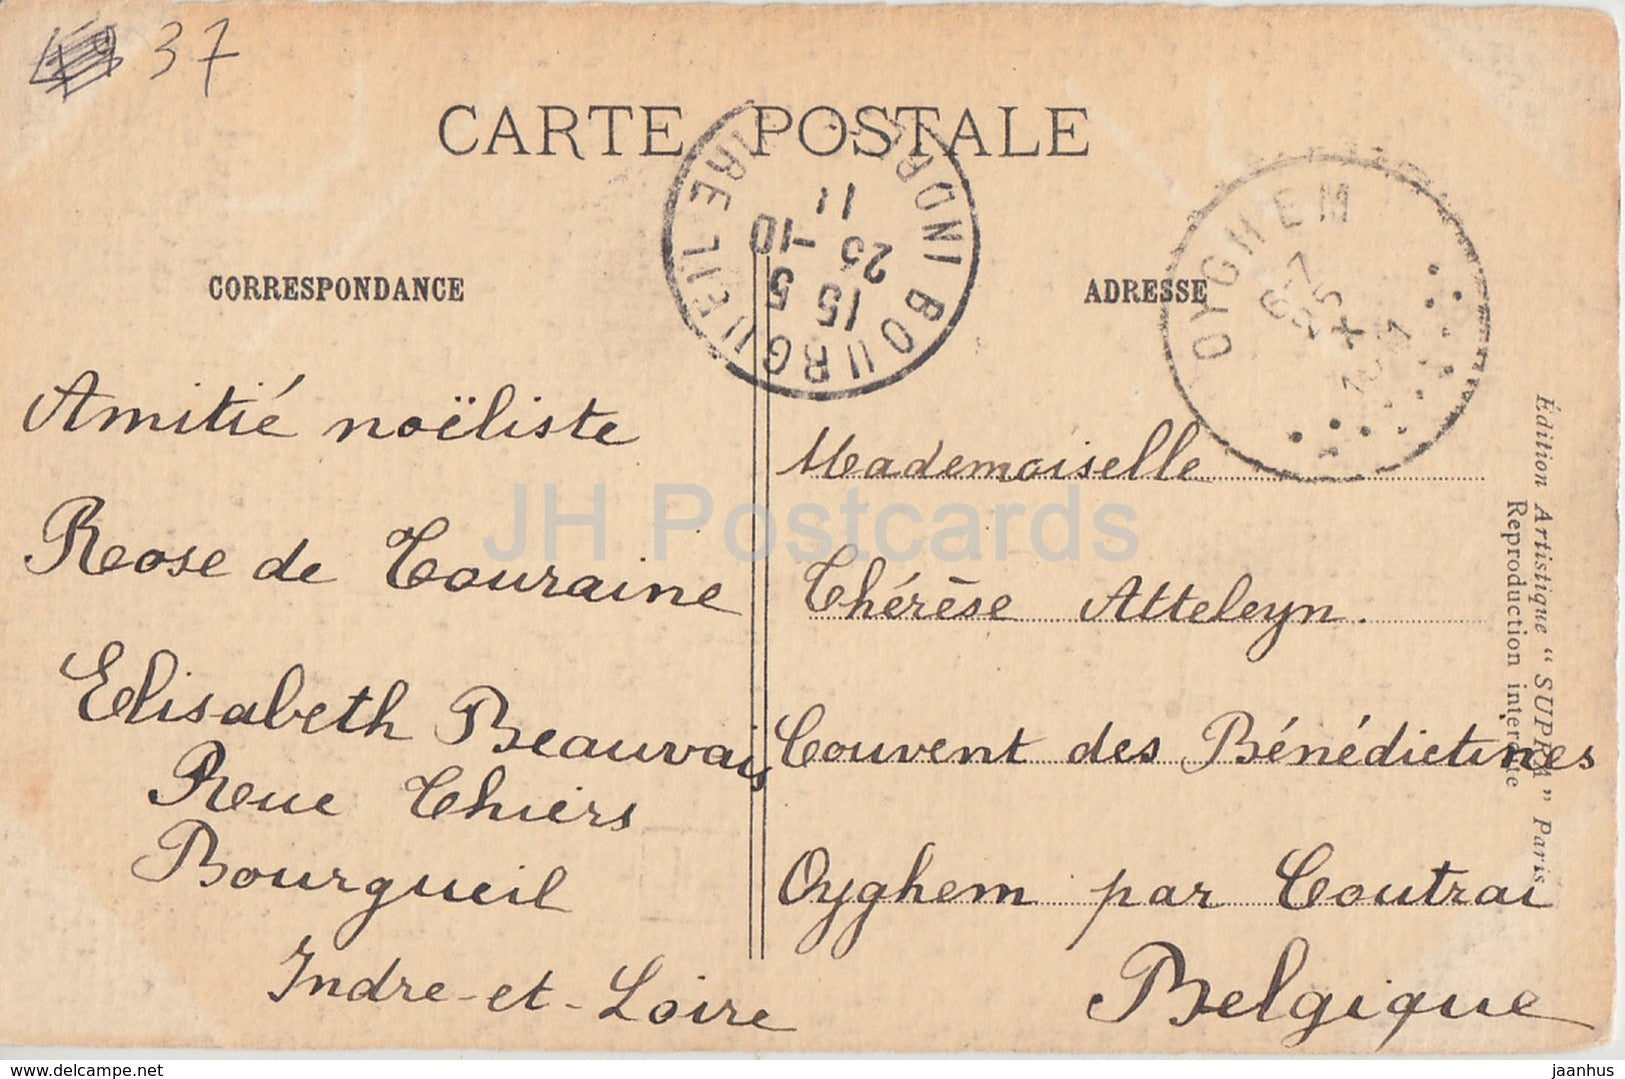 37
CARTE POSTALE
CORRESPONDANCE
ADRESSE
INDRE ET LOIRE BOURGUEIL
15 5
25 -10
11
OYGHEM
6-7
25 X
Amitié noëliste
Rose de Touraine
Elisabeth Beauvais
Rue Thiers
Bourgueil
Indre-et-Loire
Mademoiselle
Thérèse Atteleyn.
Couvent des Bénédictines
Oyghem par Coutrai
Belgique
Édition Artistique "SUPRA" Paris
Reproduction interdite
JH Postcards
www.delcampe.net
jaanhus